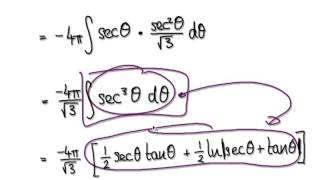 = -4π ∫ secθ · sec²θ/√3 dθ
= -4π/√3 ∫ sec³θ dθ
= -4π/√3 [ 1/2 secθ tanθ + 1/2 ln|secθ + tanθ| ]